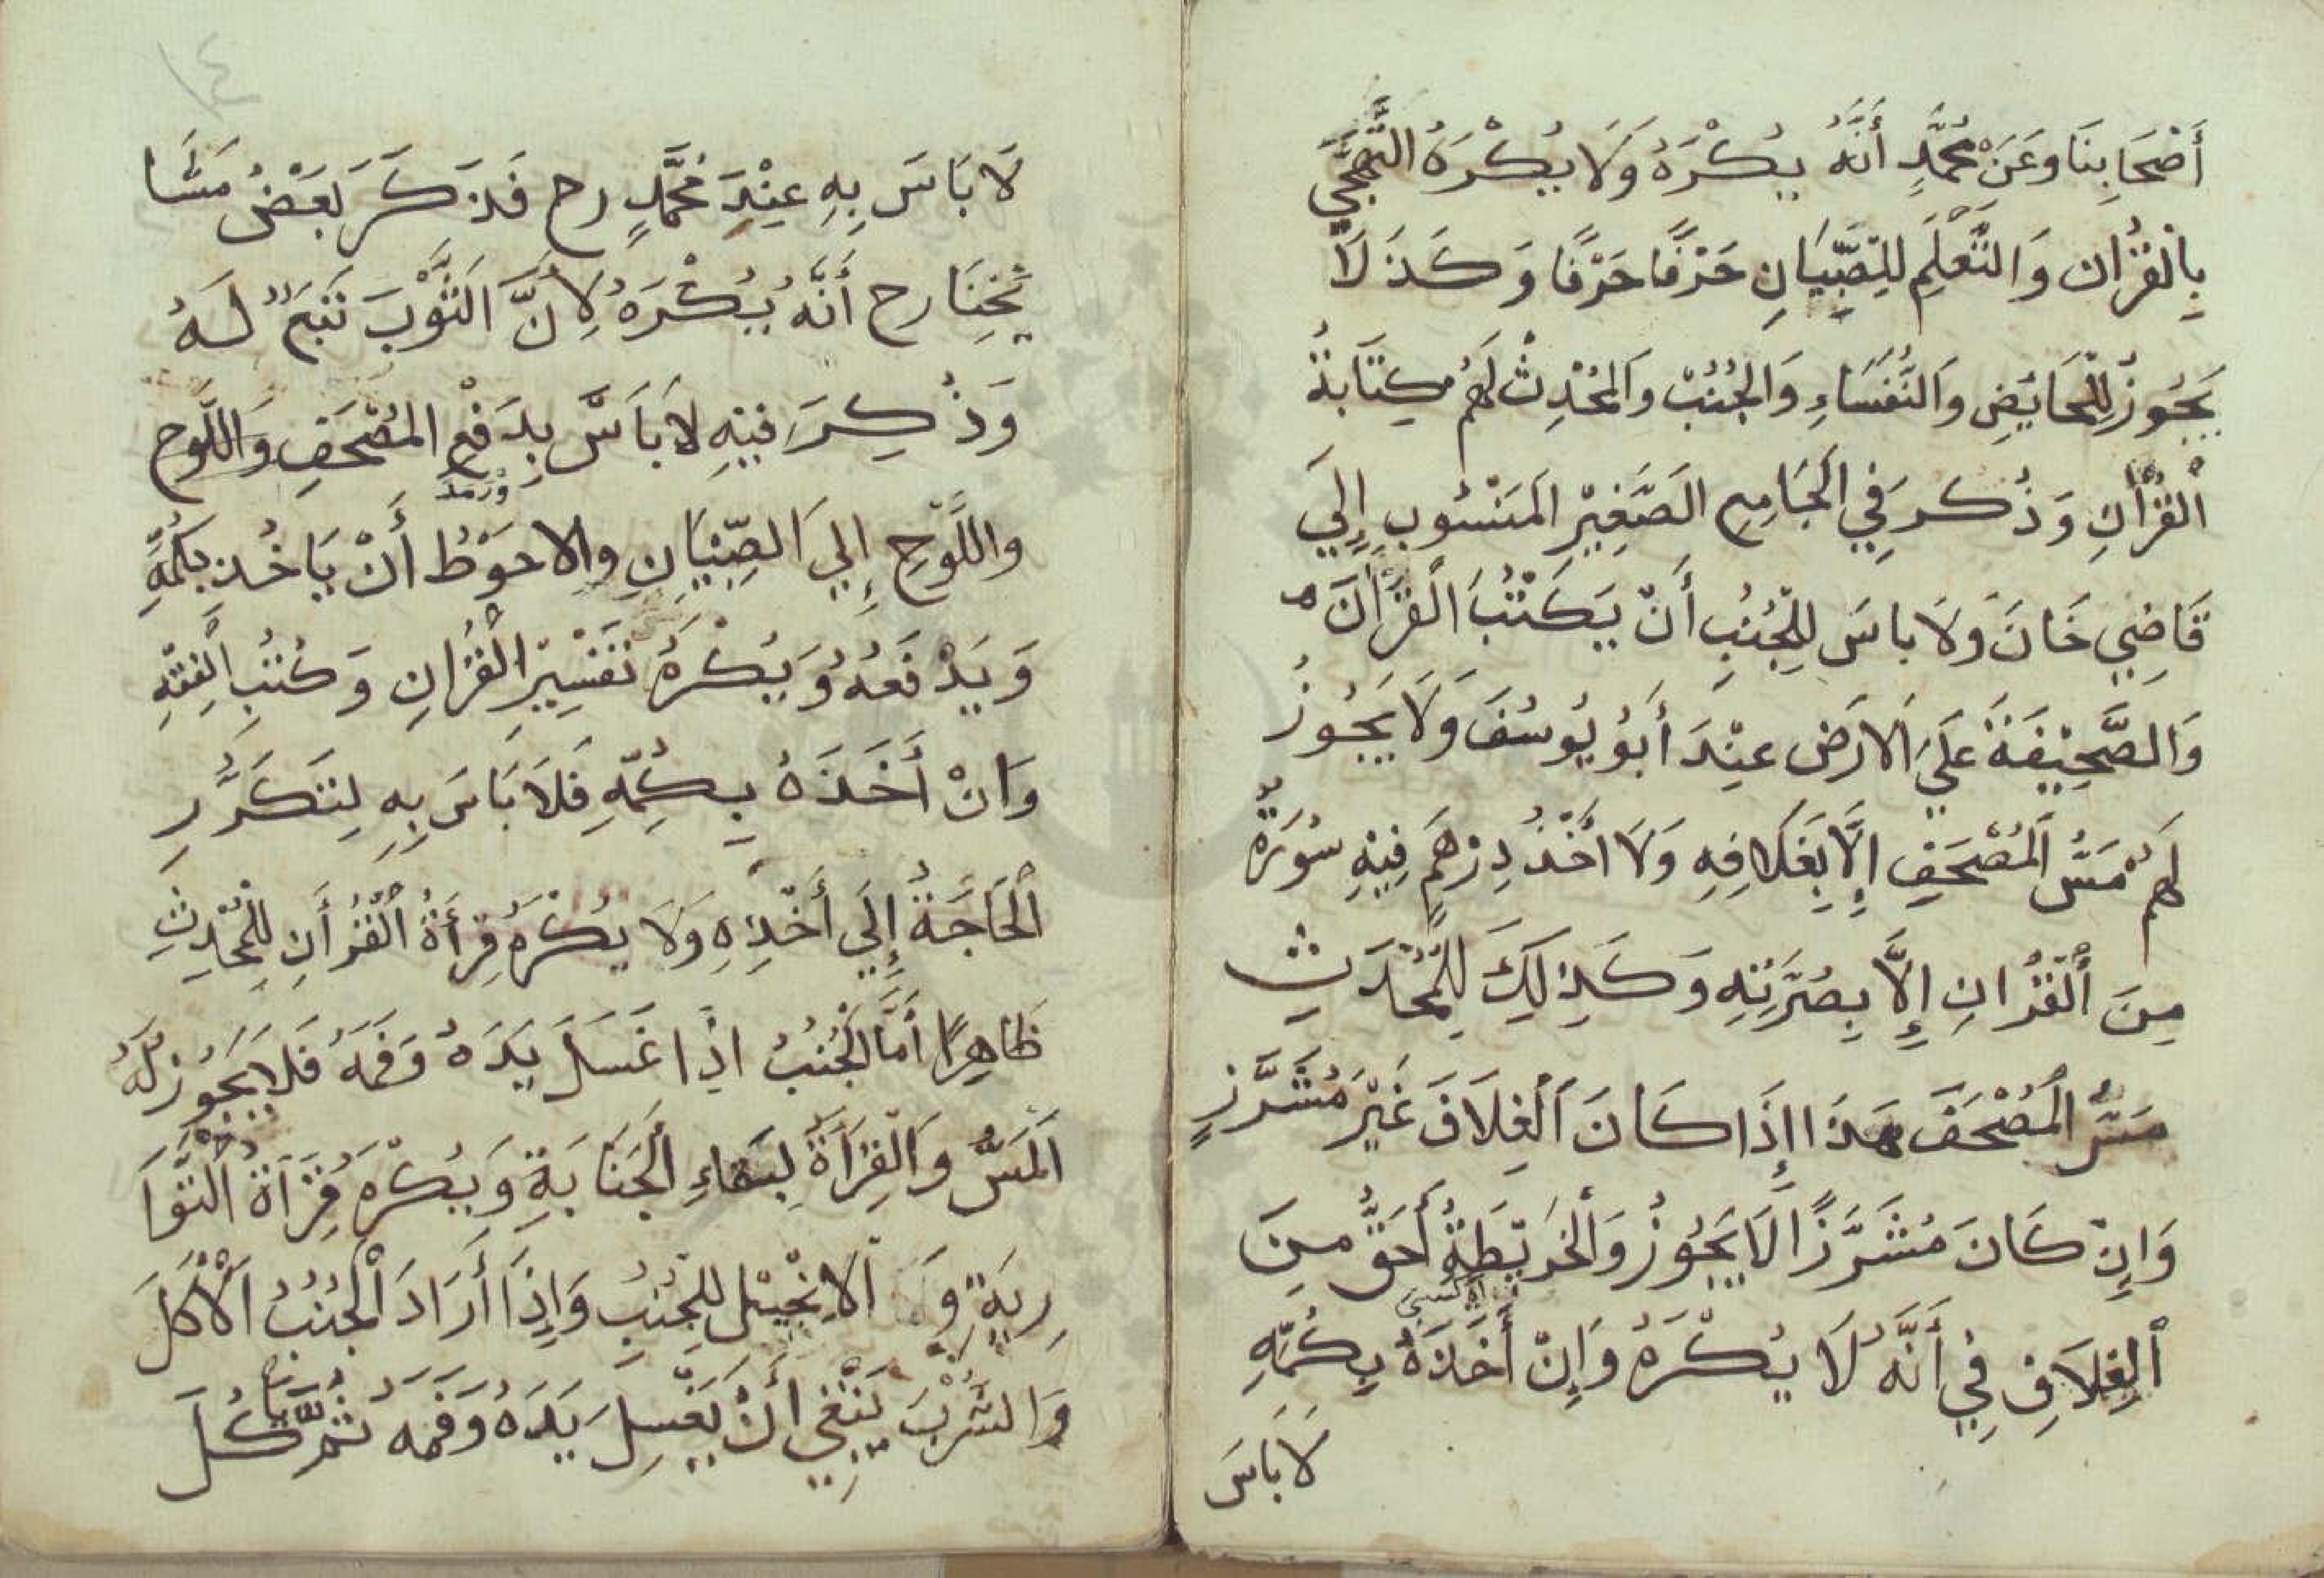 أَصْحَابِنَا وَعَنْ مُحَمَّدٍ أَنَّهُ يُكْرَهُ وَلَا يُكْرَهُ التَّهَجِّي
بِالْقُرْانِ وَالتَّعْلِمِ لِلصِّبْيَانِ حَرْفًا حَرْفًا وَكَذَ لَا
يَجُوزُ لِلْحَايَضِ وَالنُّفَسَاءِ وَالْجُنُبْ وَالْمُحْدِثْ لَهُمْ كِتَابَةُ
الْقُرْاٰنِ وَذُكِرَ فِي الْجَامِعِ الصَّغِيْرِ الْمَنْسُوبِ إِلَي
قَاضِي خَانَ وَلَا باسَ لِلْجُنُبِ أَنْ يَكْتُبَ الْقُرْاٰنَ
وَالصَّحِيْفَةَ عَلَي الْارَضِ عِنْدَ أَبُو يُوسُفَ وَلَا يَجُوزُ
لَهُمْ مَسُّ الْمُصْحَفِ إِلَّا بِغَلَافِهِ وَلَا اَخْذُ دِرْهَمٍ فِيْهِ سُورَةٌ
مِنَ الْقُرْانِ إِلَّا بِصُرَّتِهِ وَكَذِالِكَ لِلْمُحْدَثِ
مَسُّ الْمُصْحَفَ هَذَا إِذَا كَانَ الْغِلَافَ غَيْرَ مُشَرَّزٍ
وَاِنْ كَانَ مُشَرَّزًا لَا يَجُوزُ وَالْخَرِيْطَةُ أَحَقُّ مِنَ
الْغِلَافِ فِي أَنَّهُ لَا يُكْرَهُ وَإِنْ أَخَذَهُ بِكُمِّهِ
لَا بَاسَ
لَا بَاسَ بِهِ عِنْدَ مُحَمَّدٍ رح فَذَكَرَ بَعْضُ مَشَا
يْخِنَا رح أَنَّهُ يُكْرَهُ لِاَنَّ الثَّوْبَ تَبَعٌ لَهُ
وَذُكِرَ فِيْهِ لَا بَاسَ بِدَفْعِ الْمُصْحَفِ وَاللَّوح
وَاللَّوْحِ إِلَي الصِّبْيَانِ وَالاحوَطُ أَنْ يَاخُذ بِكُمِّهِ
وَيَدْفَعُهُ وَيُكْرَهُ تَفْسِيْرِ الْقُرْانِ وَكُتُبِ الْفِقْهِ
وَانْ أَخَذَهُ بِكُمِّهِ فَلَا بَاسَ بِهِ لِتَكَرُّرِ
الْحَاجَةُ إِلَي أَخْذِهِ وَلَا يُكْرَهُ قِرْأَةُ الْقُرْأَنِ لِلْمُحْدِثِ
ظَاهِرًا أَمَّا الْجُنُبُ اذَا غَسَلَ يَدَهُ وَفَمَهُ فَلَا يَجُوزُ لَهُ
الْمَسُّ وَالْقِرَاَةَ لِبَقَاءِ الْجَنَابَةِ وَيُكْرَهُ قِرَاَةَ التَّوْا
رِيَةِ وَ الْاِنْجِيْل لِلْجُنُبِ وَإِذَا أَرَادَ الْجُنُبُ الْأَكْلَ
وَالشُّرْبَ يَنْبَغِي أَنْ يَغْسِلَ يَدَهُ وَفَمَهُ ثُمَّ يَاكُلَ